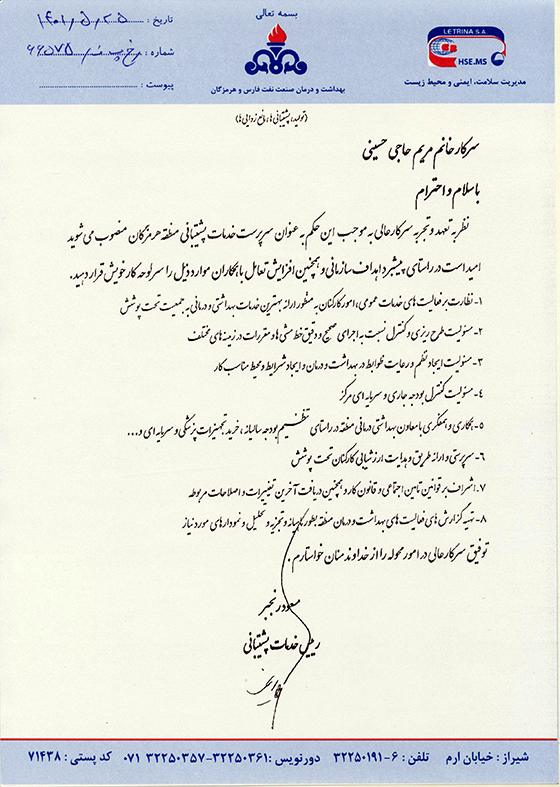 بسمه تعالی
تاریخ : ۱۴۰۱/۵/۲۵
شماره :
پیوست :
بهداشت و درمان صنعت نفت فارس و هرمزگان
LETRINA S.A.
HSE.MS
مدیریت سلامت، ایمنی و محیط زیست
(تولید، پشتیبانی ها، مانع زدایی ها)
سرکار خانم مریم حاجی حسینی
با سلام و احترام
نظر به تعهد و تجربه سرکار عالی به موجب این حکم به عنوان سرپرست خدمات پشتیبانی منطقه هرمزگان منصوب می شوید
امید است در راستای پیشبرد اهداف سازمانی و همچنین افزایش تعامل با همکاران موارد ذیل را سرلوحه کار خویش قرار دهید.
۱- نظارت بر فعالیت های خدمات عمومی، امور کارکنان به منظور ارائه بهترین خدمات بهداشتی و درمانی به جمعیت تحت پوشش
۲- مسئولیت طرح ریزی و کنترل نسبت به اجرای صحیح و دقیق خط مشی ها و مقررات در زمینه های مختلف
۳- مسئولیت ایجاد نظم و رعایت ضوابط در بهداشت و درمان و ایجاد شرایط و محیط مناسب کار
۴- مسئولیت کنترل بودجه جاری و سرمایه ای مرکز
۵- همکاری و همفکری با معاون بهداشتی درمانی منطقه در راستای تنظیم بودجه سالیانه ، خرید تجهیزات پزشکی و سرمایه ای و...
۶- سرپرستی و ارائه طریق و هدایت ارزشیابی کارکنان تحت پوشش
۷- اشراف بر قوانین تامین اجتماعی و قانون کار و همچنین دریافت آخرین تغییرات و اصلاحات مربوطه
۸- تهیه گزارش های فعالیت های بهداشت و درمان منطقه بطور ماهیانه و تجزیه و تحلیل و نمودارهای مورد نیاز
توفیق سرکار عالی در امور محوله را از خداوند منان خواستارم .
مسعود رنجبر
رییس خدمات پشتیبانی
شیراز : خیابان ارم تلفن : ۶-۳۲۲۵۰۱۹۱ دورنویس : ۳۲۲۵۰۳۶۱-۳۲۲۵۰۳۵۷ ۰۷۱ کد پستی : ۷۱۴۳۸